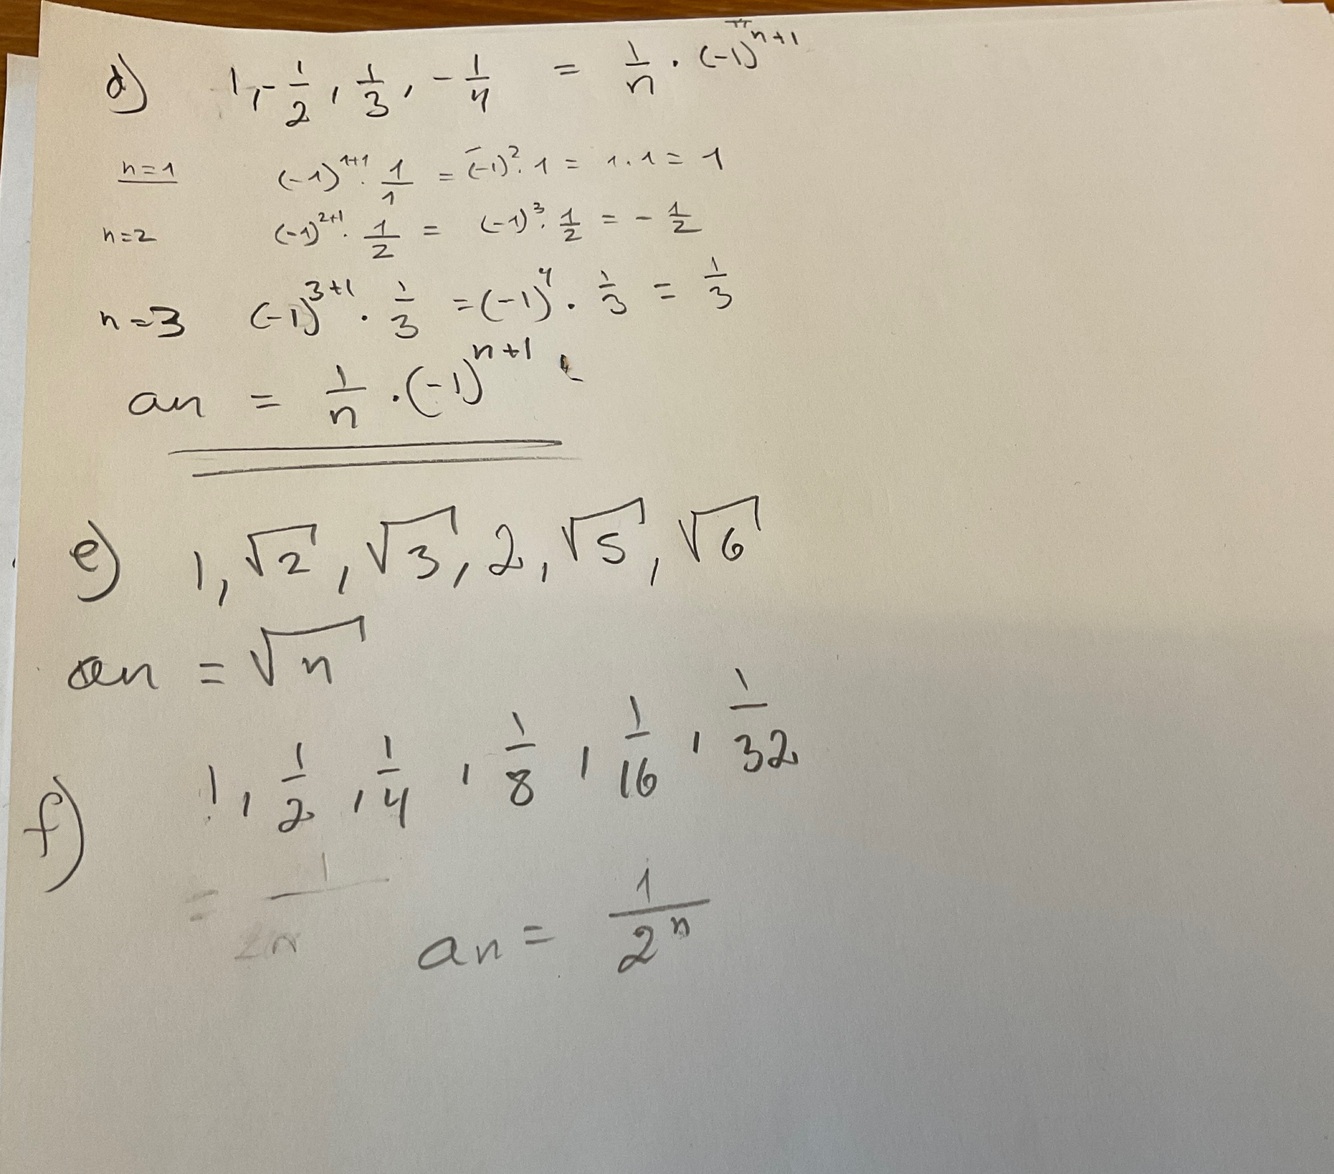 d) 1, -1/2, 1/3, -1/4 = 1/n · (-1)^n+1
n=1 (-1)^1+1 · 1/1 = (-1)^2 · 1 = 1 · 1 = 1
n=2 (-1)^2+1 · 1/2 = (-1)^3 · 1/2 = - 1/2
n=3 (-1)^3+1 · 1/3 = (-1)^4 · 1/3 = 1/3
an = 1/n · (-1)^n+1
e) 1, √2, √3, 2, √5, √6
an = √n
f) 1, 1/2, 1/4, 1/8, 1/16, 1/32
= 1/2n an = 1/2^n